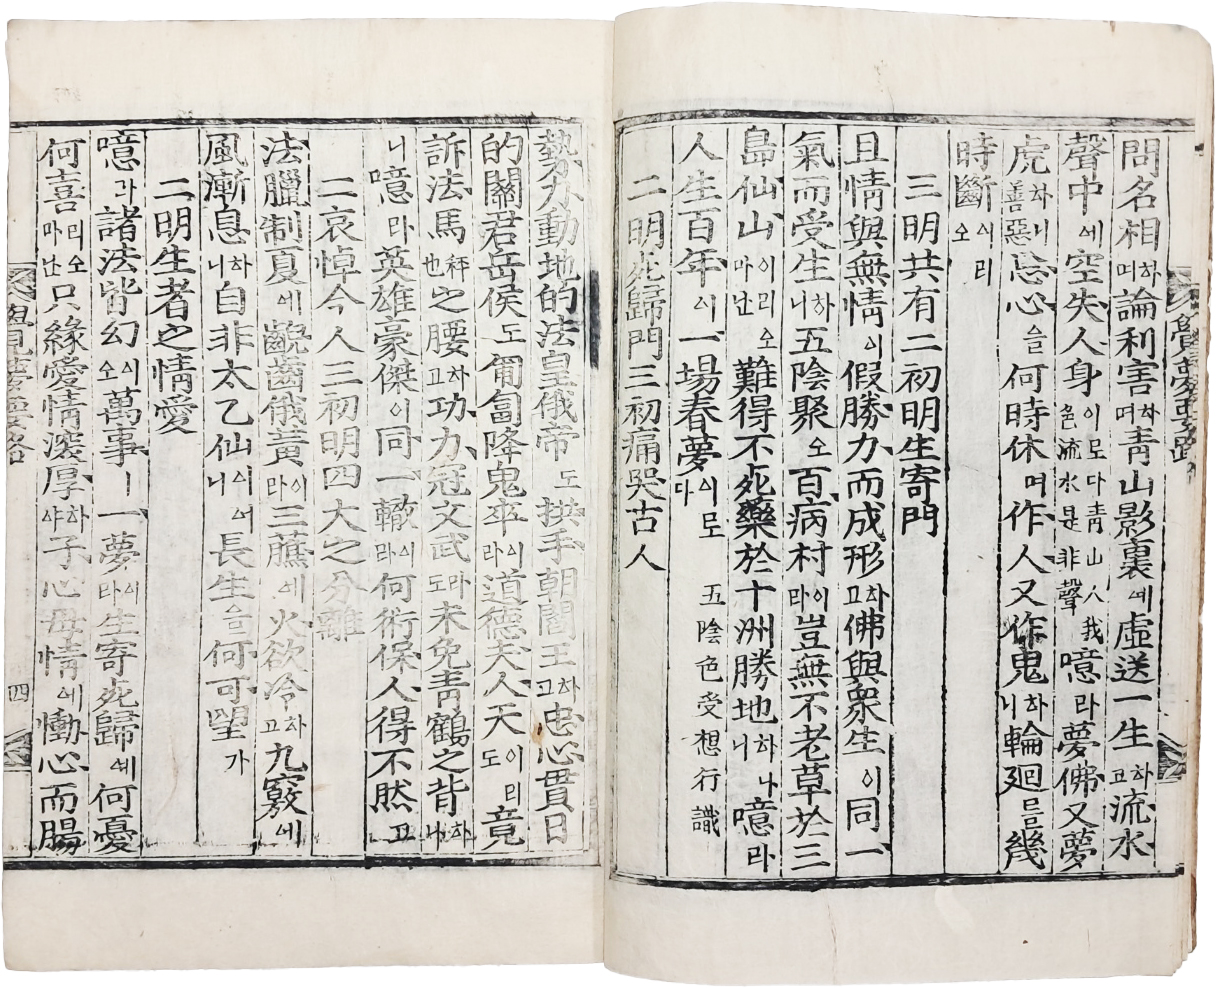 覺夢要路
問名相하며論利害하며青山影裏예虛送一生하고流水
聲中에空失人身이로다青山人我色流水是非聲噫라夢佛又夢
虎하니善惡忩心을何時休며作人又作鬼하니輪廻를幾
時斷이리오
三明共有二初明生寄門
且情與無情이假勝力而成形하고佛與衆生이同一
氣而受生하니五陰聚오百病村이라豈無不老草於三
島仙山이리오마난難得不死藥於十洲勝地하나니噫라
人生百年이一場春夢이로다五陰色受想行識
二明死歸門三初痛哭古人
勢力動地的法皇俄帝도拱手朝閻王하고忠心貫日
的關君岳侯도匍匐降鬼卒이라道德夫人天이리도竟
訴法馬秤也之腰하고功力冠文武라도未免靑鶴之背하나
니噫라英雄豪傑이同一轍이라何術保人得不然고
二哀悼今人三初明四大之分離
法臘制夏에齯齒俄黃이라三藨에火欲冷하고九竅에
風漸息하니自非太乙仙이니여長生을何可望가
二明生者之情愛
噫라諸法皆幻이오萬事ㅣ一夢이라生寄死歸예何憂
何喜리오마난只緣愛情深厚하야子心母情에慟心而腸
覺夢要路 四